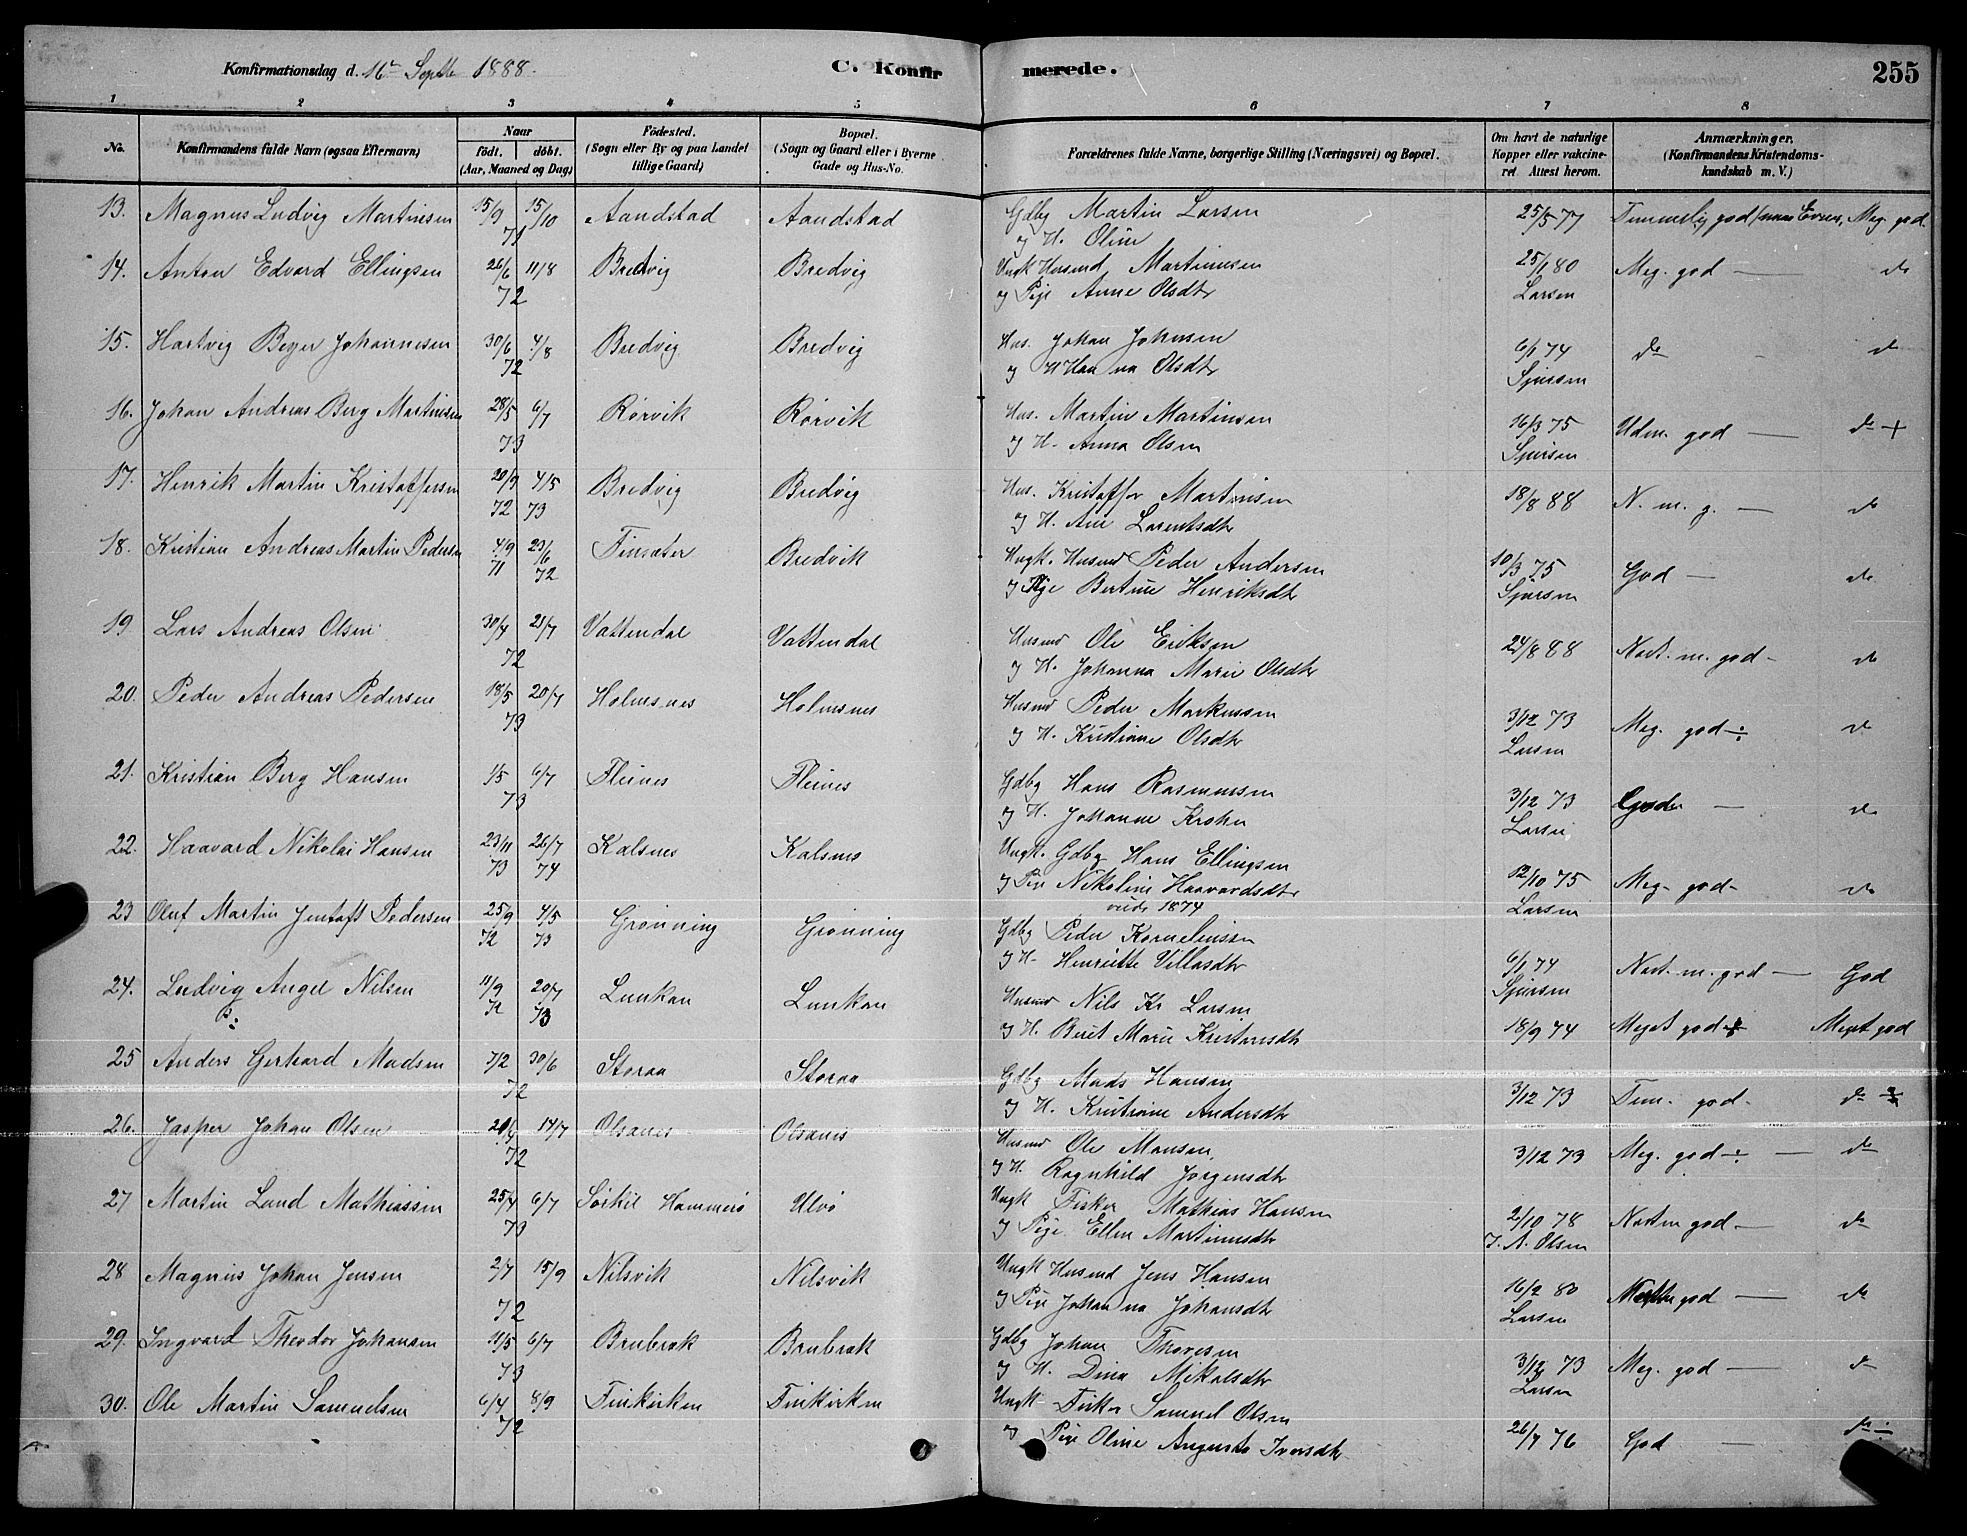 Konfirmationsdag d. 16de Septbr 1888.
C. Konfirmerede.
255
1 2 3 4 5 6 7 8
No.
Konfirmandens fulde Navn (ogsaa Efternavn)
Naar
født. døbt.
(Aar, Maaned og Dag)
Fødested.
(Sogn eller By og paa Landet
tillige Gaard.)
Bopæl.
(Sogn og Gaard eller i Byerne
Gade og Hus-No.
Forældrenes fulde Navne, borgerlige Stilling (Næringsvei) og Bopæl.
Om havt de naturlige
Kopper eller vakcine-
ret Attest herom.
Anmærkninger.
(Konfirmandens Kristendoms-
kundskab m. V.)
13. Magnus Ludvig Martinsen 15/9 15/10 Aandstad Aandstad Gdbg Martin Larsen 25/5 77 Temmelig god Evner, Meg. god
71 og H. Oline
14. Anton Edvard Ellingsen 26/6 11/8 Bredvig Bredvig Ungk Husmd Martinusen 25/1 80 Meg. god — do
72 og Pige Anne Olsdtr Larsen
15. Hartvig Beyer Johannesen 30/6 4/8 Bredvig Bredvig Hus. Johan Johnsen 6/1 74 do do
72 og H Hanna Olsdtr Sjursen
16. Johan Andreas Berg Martinsen 28/5 6/7 Rørvik Rørvik Hus. Martin Martinsen 16/3 75 Udm. god — do +
73 og H. Anna Olsen Sjursen
17. Henrik Martin Kristoffersen 20/9 4/5 Bredvig Bredvig Hus. Kristoffer Martinsen 18/8 88 N. m. g. — do
72 73 og H. Ane Lorentsdtr
18. Kristian Andreas Martin Pedersen 4/9 23/6 Finsæter Bredvik Ungk. Husmd Peder Andersen 10/3 75 God — do
71 72 og Pige Bertine Henriksdtr Sjursen
19 Lars Andreas Olsen 30/4 21/7 Vattendal Vattendal Husmd Ole Eriksen 24/8 88 Nest. m. god - do
72 og H. Johanna Marie Olsdtr
20. Peder Andreas Pedersen 18/5 20/7 Holmsnes Holmsnes Husmd Peder Markussen 3/12 73 Meg. god ÷ do
73 og H. Kristiane Olsdtr Larsen
21. Kristian Berg Hansen 1/5 6/7 Fleines Fleines Gdbg Hans Rasmussen 3/12 73 God — do
73 og H. Johanne Krohn Larsen
22. Haavard Nikolai Hansen 23/11 26/7 Kalsnes Kalsnes Ungk. Gdbg Hans Ellingsen 12/10 75 Meg. god - do
73 74 og Pige Nikoline Haavardsdtr Larsen
1874
23 Oluf Martin Jentoft Pedersen 25/9 4/5 Grønning Grønning Gdbg Peder Korneliussen 6/1 74 Nest. m. god — God
72 73 og H. Henriette Villasdtr Sjursen
24. Ludvig Angel Nilsen 11/9 20/7 Lunkan Lunkan Husmd Nils Kr Larsen 18/9 74 Meget god + Meget god
72 73 og H. Beret Marie Kristensdtr
25 Anders Gerhard Madsen 7/2 30/6 Storaa Storaa Gdbg Mads Hansen 3/12 73 Tem. god - do
72 og H. Kristiane Andersdtr
26. Jasper Johan Olsen 20/4 14/7 Olsanes Olsanes Husmd Ole Monsen 3/12 73 Meg. god ÷ — do
72 og H. Ragnhild Jørgensdtr
27 Martin Lund Mathiassen 25/4 6/7 Sørkil Hammerø Ulvø Ungk Fisker Mathias Hansen 2/10 78 Nest m god - do
73 og Pige Ellen Martinusdtr J. A. Olsen
28 Magnus Johan Jensen 2/7 15/9 Nilsvik Nilsvik Ungk Husmd Jens Hansen 16/2 80 god — do
72 og Pige Johanna Johansdtr Larsen
29. Ingvard Theodor Johansen 11/5 6/7 Brubræk Brubræk Gdbg Johan Thoresen 3/12 73 Meg. god — do
73 og H. Dina Mikalsdtr Larsen
30. Ole Martin Samuelsen 6/4 8/9 Finkirken Finkirken Ungk Fisker Samuel Olsen 26/7 76 God — do ÷
72 og Pige Oline Augusta Iversdtr